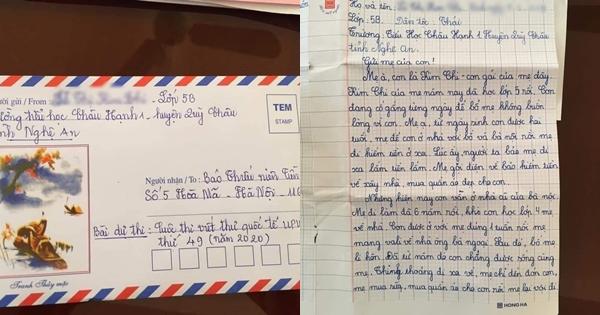 Người gửi / From
Lớp 5B
ường tiểu học Châu Hạnh 1 - huyện Quỳ Châu
nh Nghệ An
TEM
STAMP
Người nhận / To : Báo Thiếu niên Tiền
Số 5 Hoà Mã - Hà Nội - 116
Bài dự thi : Cuộc thi viết thư quốc tế UPU
thứ 49 (năm 2020)
Tranh Thủy mặc
Họ và tên:
Lớp: 5B Dân tộc: Thái
Trường: Tiểu Học Châu Hạnh 1 Huyện Quỳ Châu
tỉnh Nghệ An.
Gửi mẹ của con!
Mẹ à, con là Kim Chi - con gái của mẹ đây.
Kim Chi của mẹ năm nay đã học lớp 5 rồi. Con
đang cố gắng từng ngày để bố mẹ không buồn
lòng vì con. Mẹ ạ, từ ngày sinh con được hai
tuổi, mẹ để con ở nhà với bố và bà nội rồi mẹ
đi kiếm tiền ở xa. Lúc ấy, người ta bảo mẹ đi
xa lắm tiền lắm. Mẹ gọi điện về bảo kiếm tiền
về xây nhà, mua quần áo đẹp cho con.
Nhưng hiện nay con vẫn ở nhà cũ của bà nội.
Mẹ đi làm đã 6 năm rồi, khi con học lớp 4 mẹ
về nhà. Con được ở với mẹ đúng 1 tuần rồi mẹ
mang vali về nhà ông bà ngoại. Sau đó, bố mẹ
li hôn. Đã từ năm đó con chẳng được sống cùng
mẹ. Thỉnh thoảng đi xa về, mẹ chỉ đến đón con,
mẹ mua sữa, mua quần áo cho con rồi mẹ lại vội đi
HONG HA